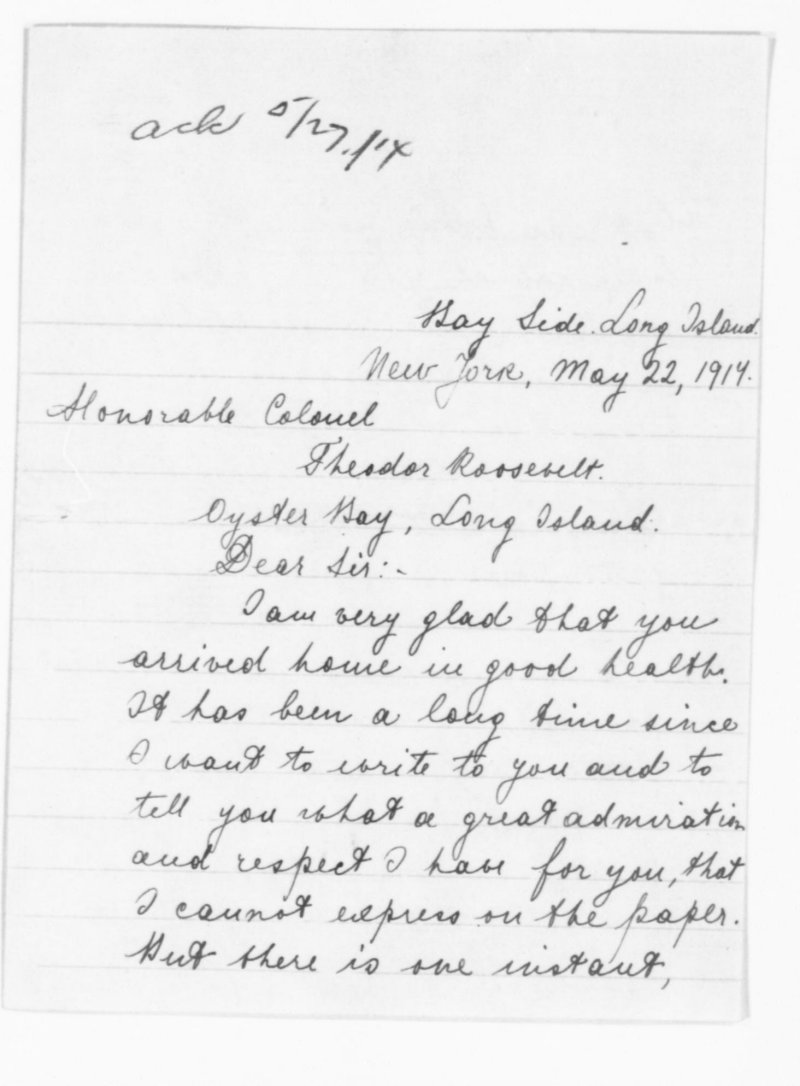 ack 5/27/14
Bay Side. Long Island.
New York, May 22, 1914.
Honorable Colonel
Theodor Roosevelt.
Oyster Bay, Long Island.
Dear Sir:-
I am very glad that you
arrived home in good health.
It has been a long time since
I want to write to you and to
tell you what a great admiration
and respect I have for you, that
I cannot express on the paper.
But there is one instant,